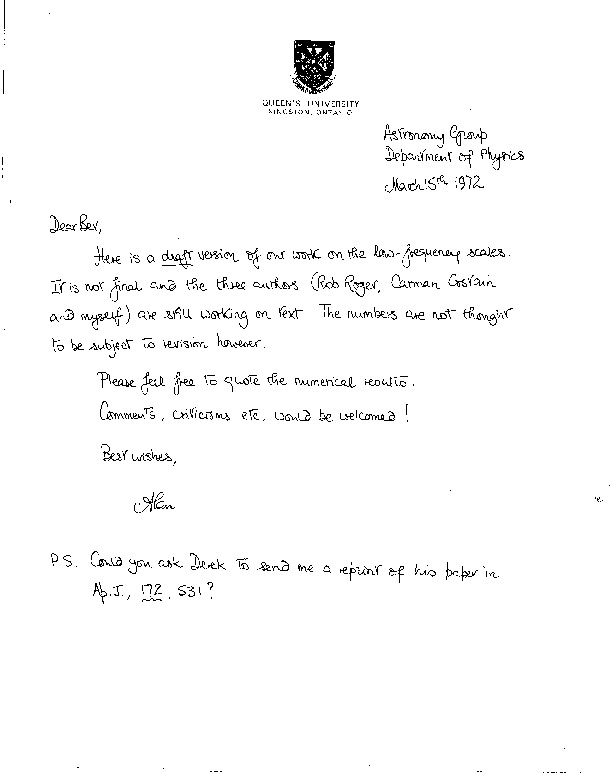 QUEEN'S UNIVERSITY
KINGSTON, ONTARIO
Astronomy Group
Department of Physics
March 15th 1972
Dear Bev,
Here is a draft version of our work on the low-frequency scales.
It is not final and the three authors (Rob Roger, Carman Costain
and myself) are still working on text. The numbers are not thought
to be subject to revision however.
Please feel free to quote the numerical results.
Comments, criticisms etc. would be welcomed!
Best wishes,
Alan
PS. Could you ask Derek to send me a reprint of his paper in
Ap.J., 172, 531?